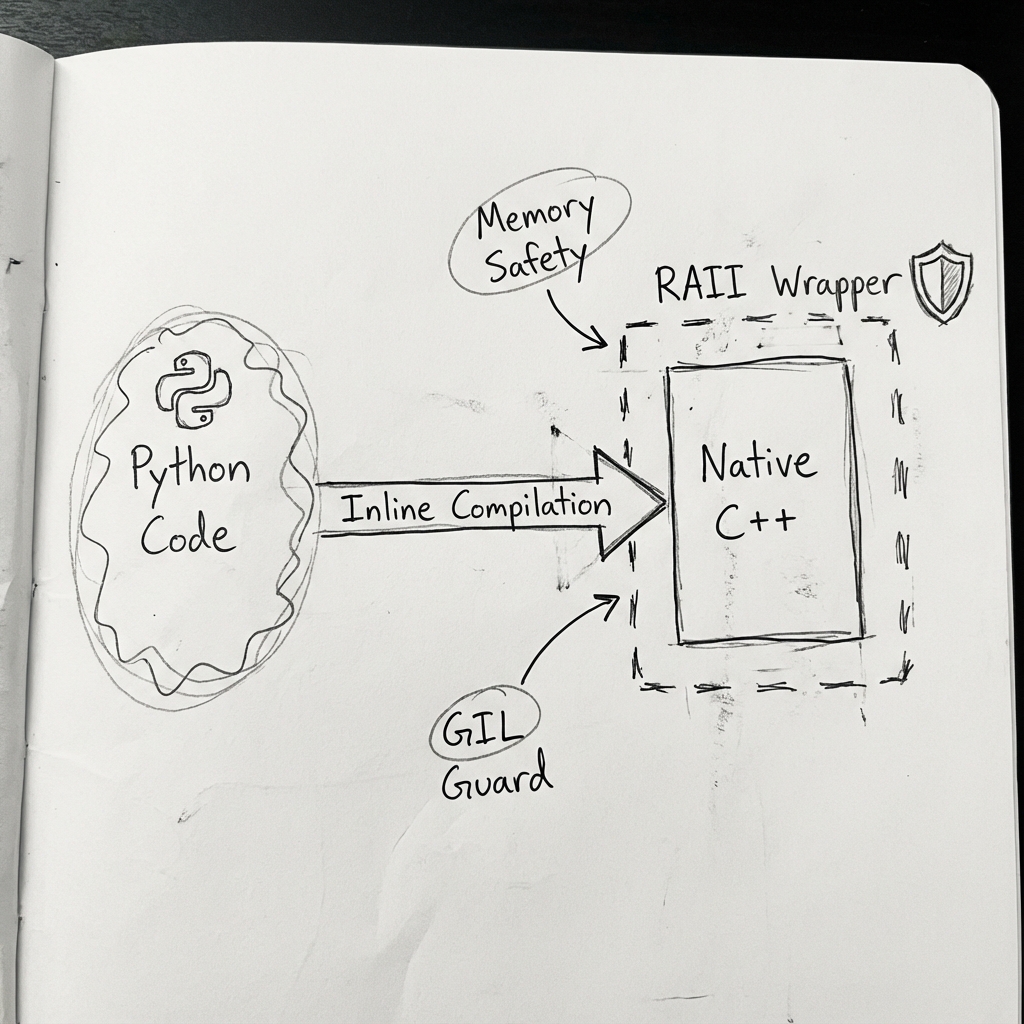 Memory
Safety
RAII Wrapper
Python
Code
Inline Compilation
Native
C++
GIL
Guard